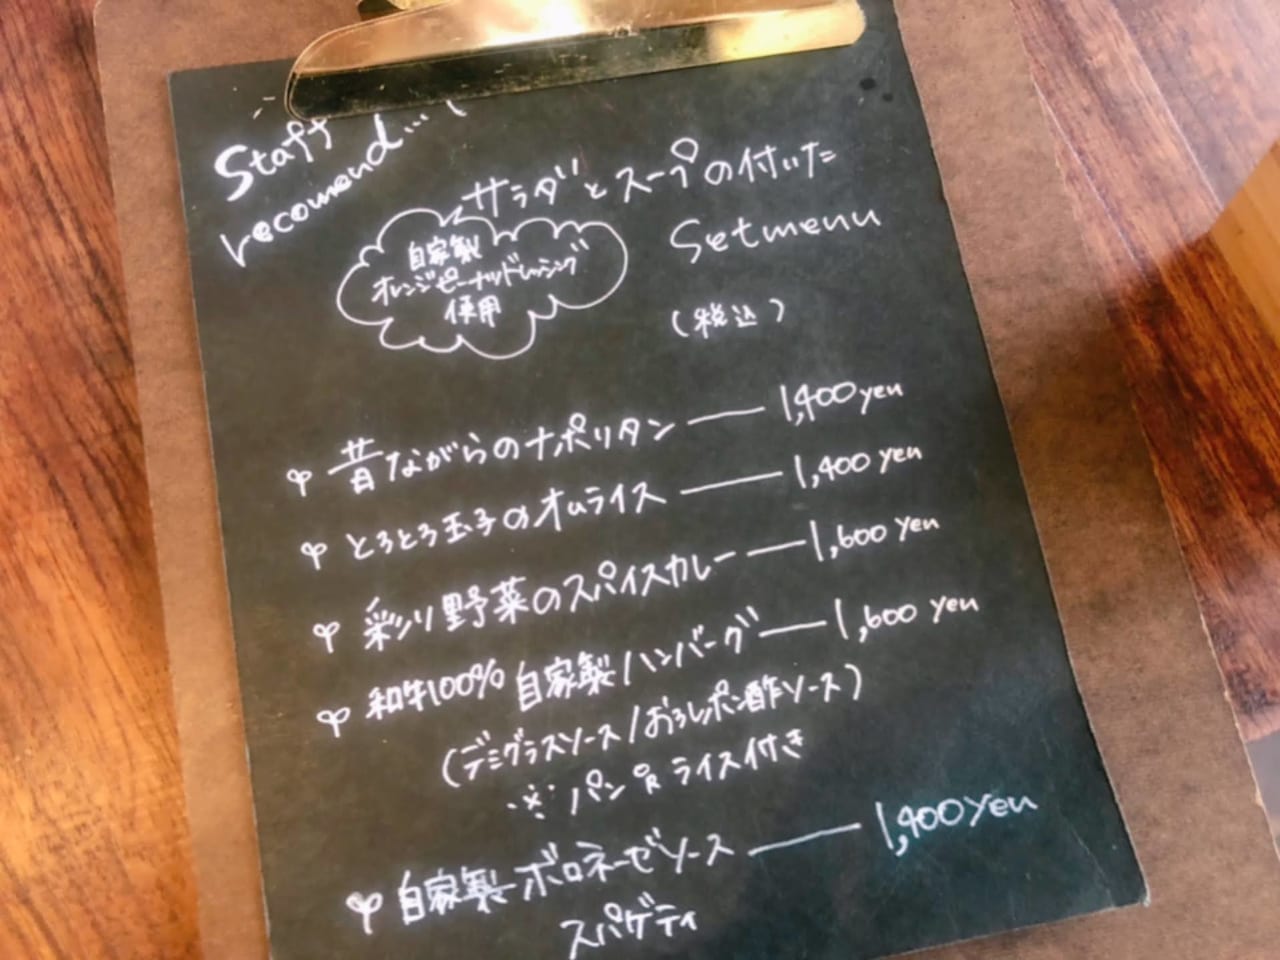 Staff
recomend...
サラダとスープの付いた
Setmenu
自家製
オレンジピーナッツドレッシング
使用
(税込)
昔ながらのナポリタン — 1,400yen
とろとろ玉子のオムライス — 1,400 yen
彩り野菜のスパイスカレー — 1,600 yen
和牛100% 自家製ハンバーグ — 1,600 yen
(デミグラスソース/おろしポン酢ソース)
※パン or ライス付き
自家製ボロネーゼソース — 1,400yen
スパゲティ